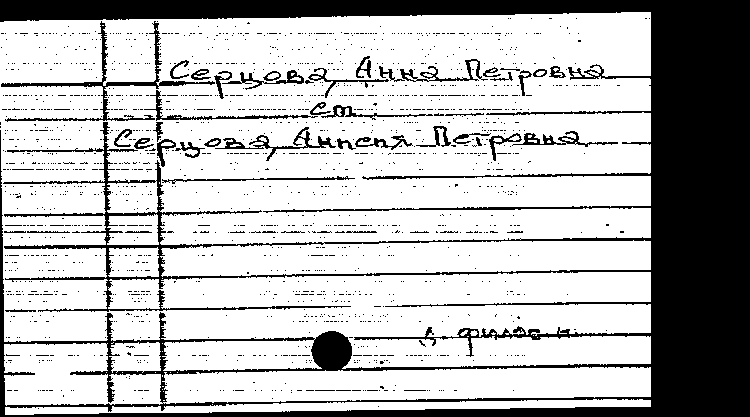 Серцова, Анна Петровна
см.
Серцова, Аппепя Петровна
д. филос. н.